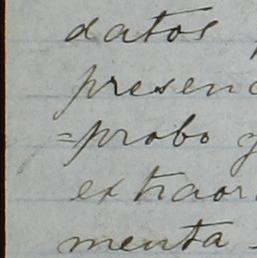 datos
presen
=probo y
extraor
menta-